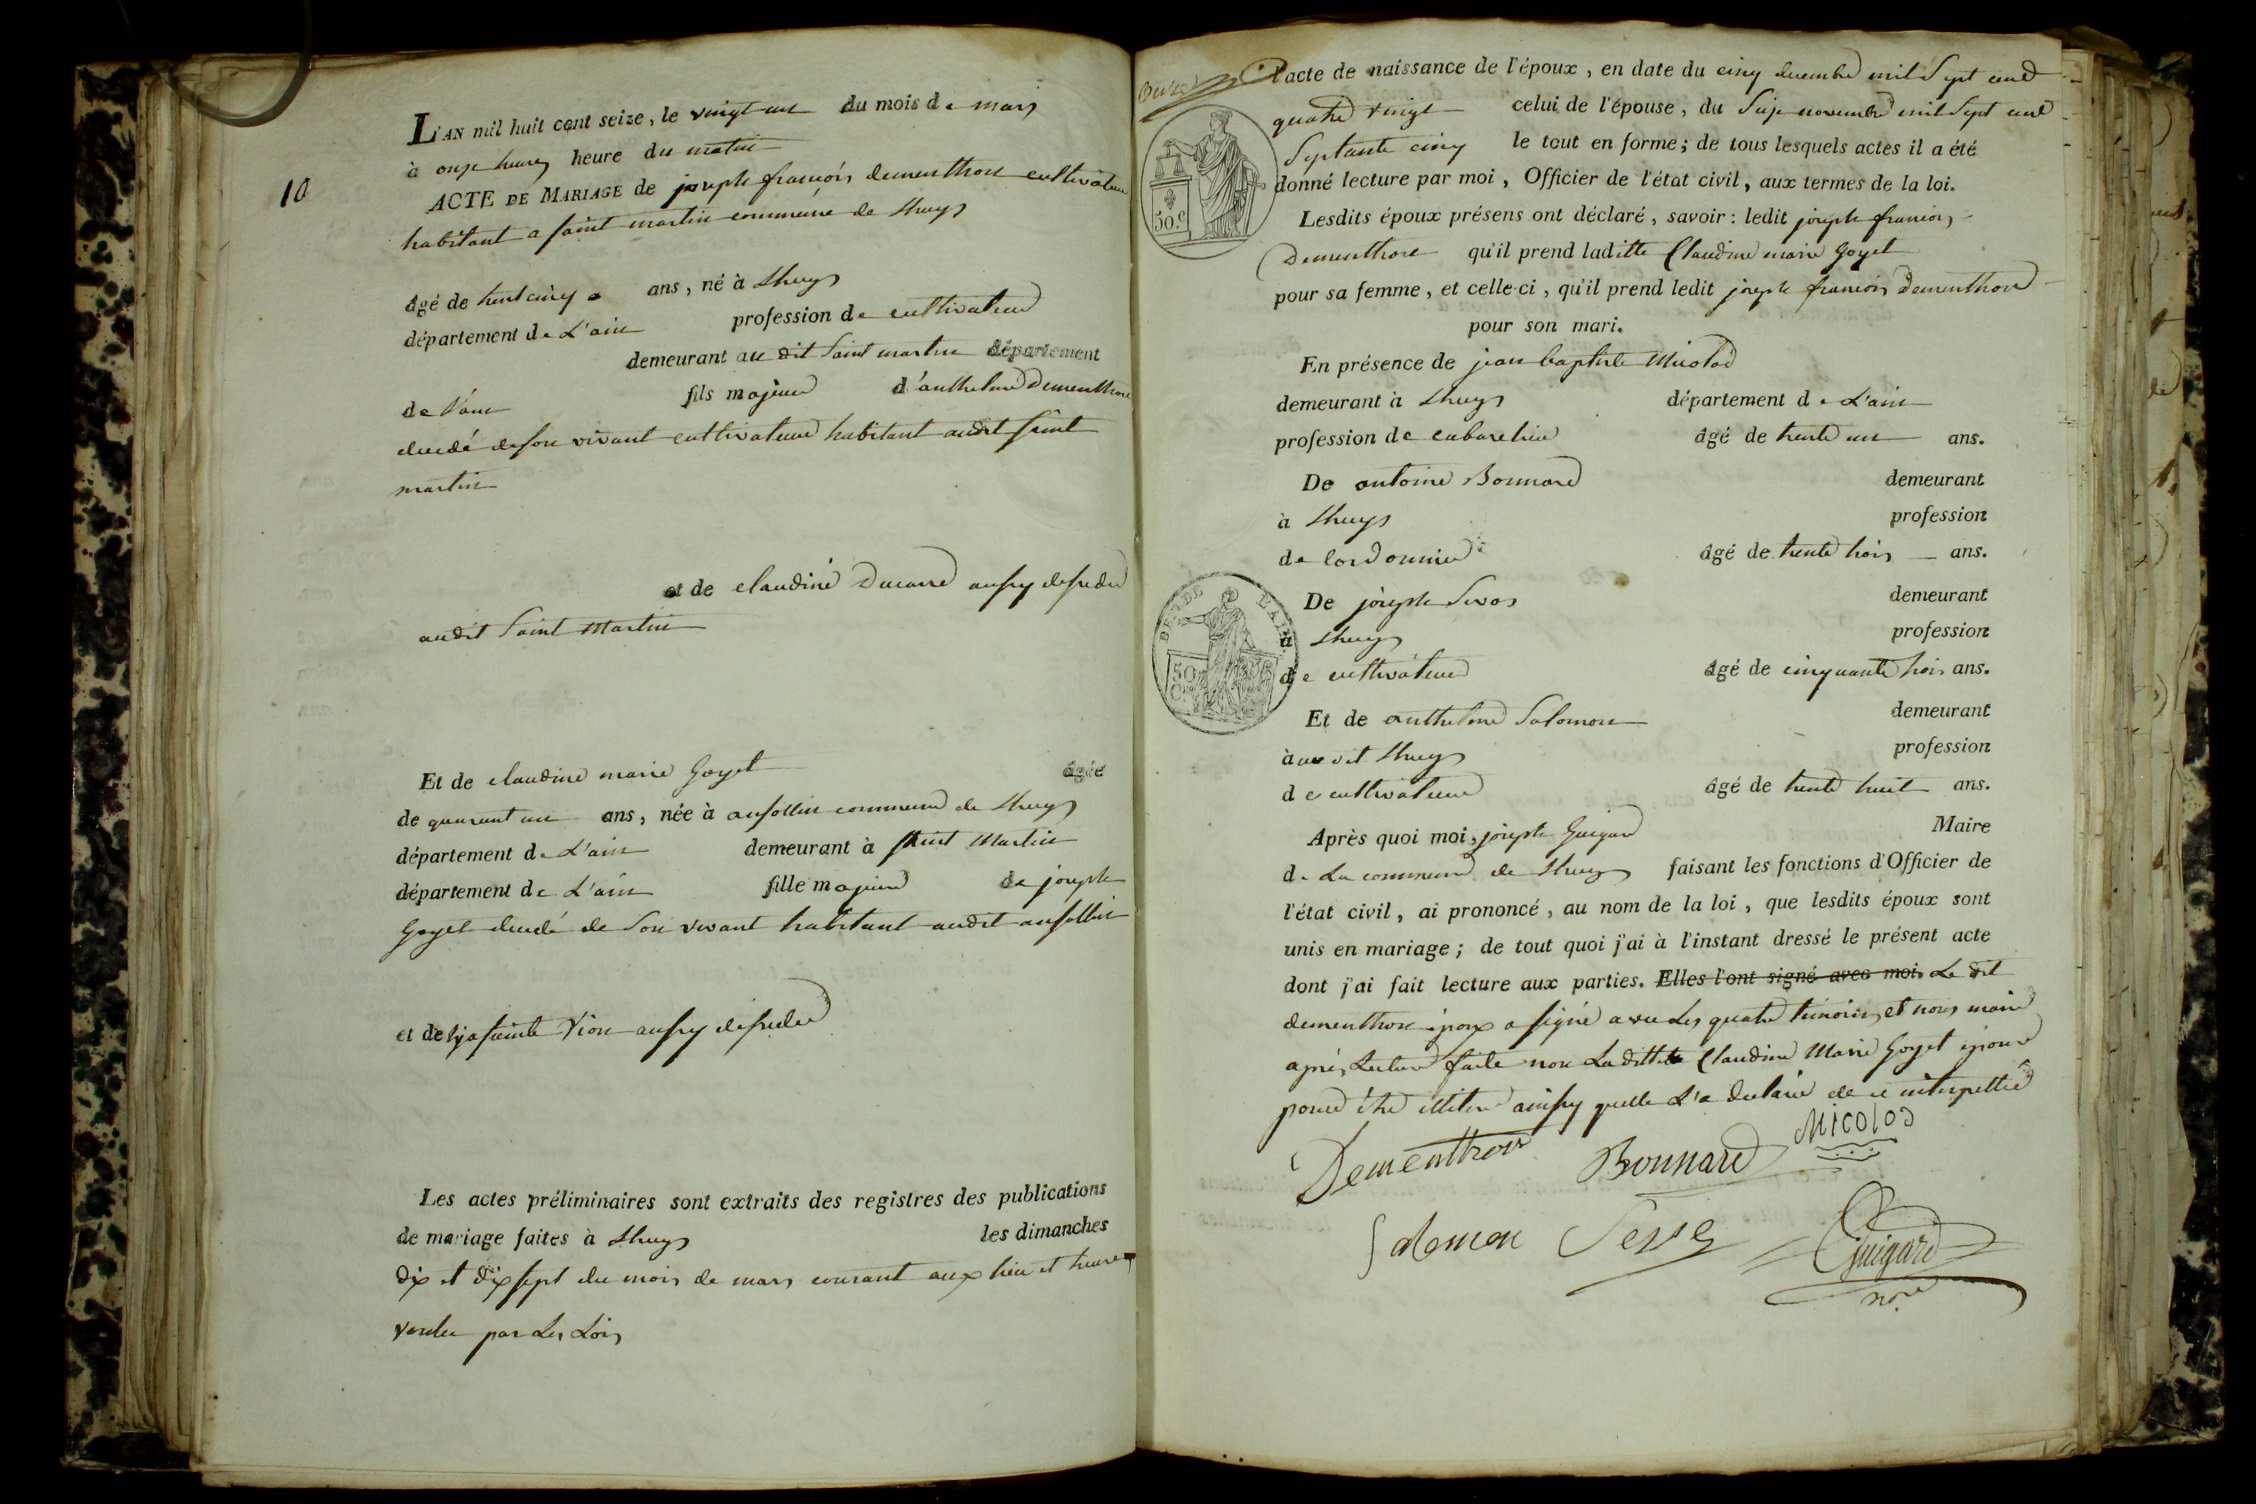 10
L'AN mil huit cent seize, le vingt un du mois de mars
à onze heures heure du matin
ACTE DE MARIAGE de joseph françois dementhon cultivateur
habitant a saint martin commune de Lhuys
âgé de trent cinq ans, né à Lhuys
département de L'ain profession de cultivateur
demeurant au dit Saint martin département
de l'ain fils majeur d'anthelme Dementhon
decedé de son vivant cultivateur habitant audit saint
martin
et de claudine Ducarre aussy desedee
audit Saint Martin
Et de claudine marie Goyet âgée
de quarant un ans, née à ansollin commune de Lhuys
département de L'ain demeurant à saint Martin
département de L'ain fille majeure de joseph
Goyet decedé de Son vivant habitant audit ansollin
et de hyasinte Vion aussy desedee
Les actes préliminaires sont extraits des registres des publications
de mariage faites à Lhuys les dimanches
dix et dix sept du mois de mars courant aux lieu et heures
voulu par Les Lois
l'acte de naissance de l'époux, en date du cinq decembre mil Sept cent
quatre vingt celui de l'épouse, du Seize novembre mil Sept cent
Septante cinq le tout en forme; de tous lesquels actes il a été
donné lecture par moi, Officier de l'état civil, aux termes de la loi.
50.c
Lesdits époux présens ont déclaré, savoir: ledit joseph francois
Dementhon qu'il prend laditte Claudine marie Goyet
pour sa femme, et celle-ci, qu'il prend ledit joseph francois Dementhon
pour son mari.
En présence de jean baptiste Micolod
demeurant à Lhuys département de L'ain
profession de cabaretier âgé de trente un ans.
De antoine Bonnard demeurant
à Lhuys profession
de Cordonnier âgé de trente trois ans.
De joseph demeurant
à Lhuys profession
de cultivateur âgé de cinquante trois ans.
50
Et de anthelme Salomon demeurant
à au dit Lhuys profession
de cultivateur âgé de trente huit ans.
Après quoi moi, joseph Guigard Maire
de La commune de Lhuys faisant les fonctions d'Officier de
l'état civil, ai prononcé, au nom de la loi, que lesdits époux sont
unis en mariage; de tout quoi j'ai à l'instant dressé le présent acte
dont j'ai fait lecture aux parties. Elles l'ont signé avec moi. Le dit
dementhon époux a signé avec Les quatre temoins et nous maire
après Lecture faite non Laditte Claudine Marie Goyet épouse
pour être illitere ainsy quelle L'a declaré de ce interpellée
Dementhon Bonnard Micolod
Salomon Guigard